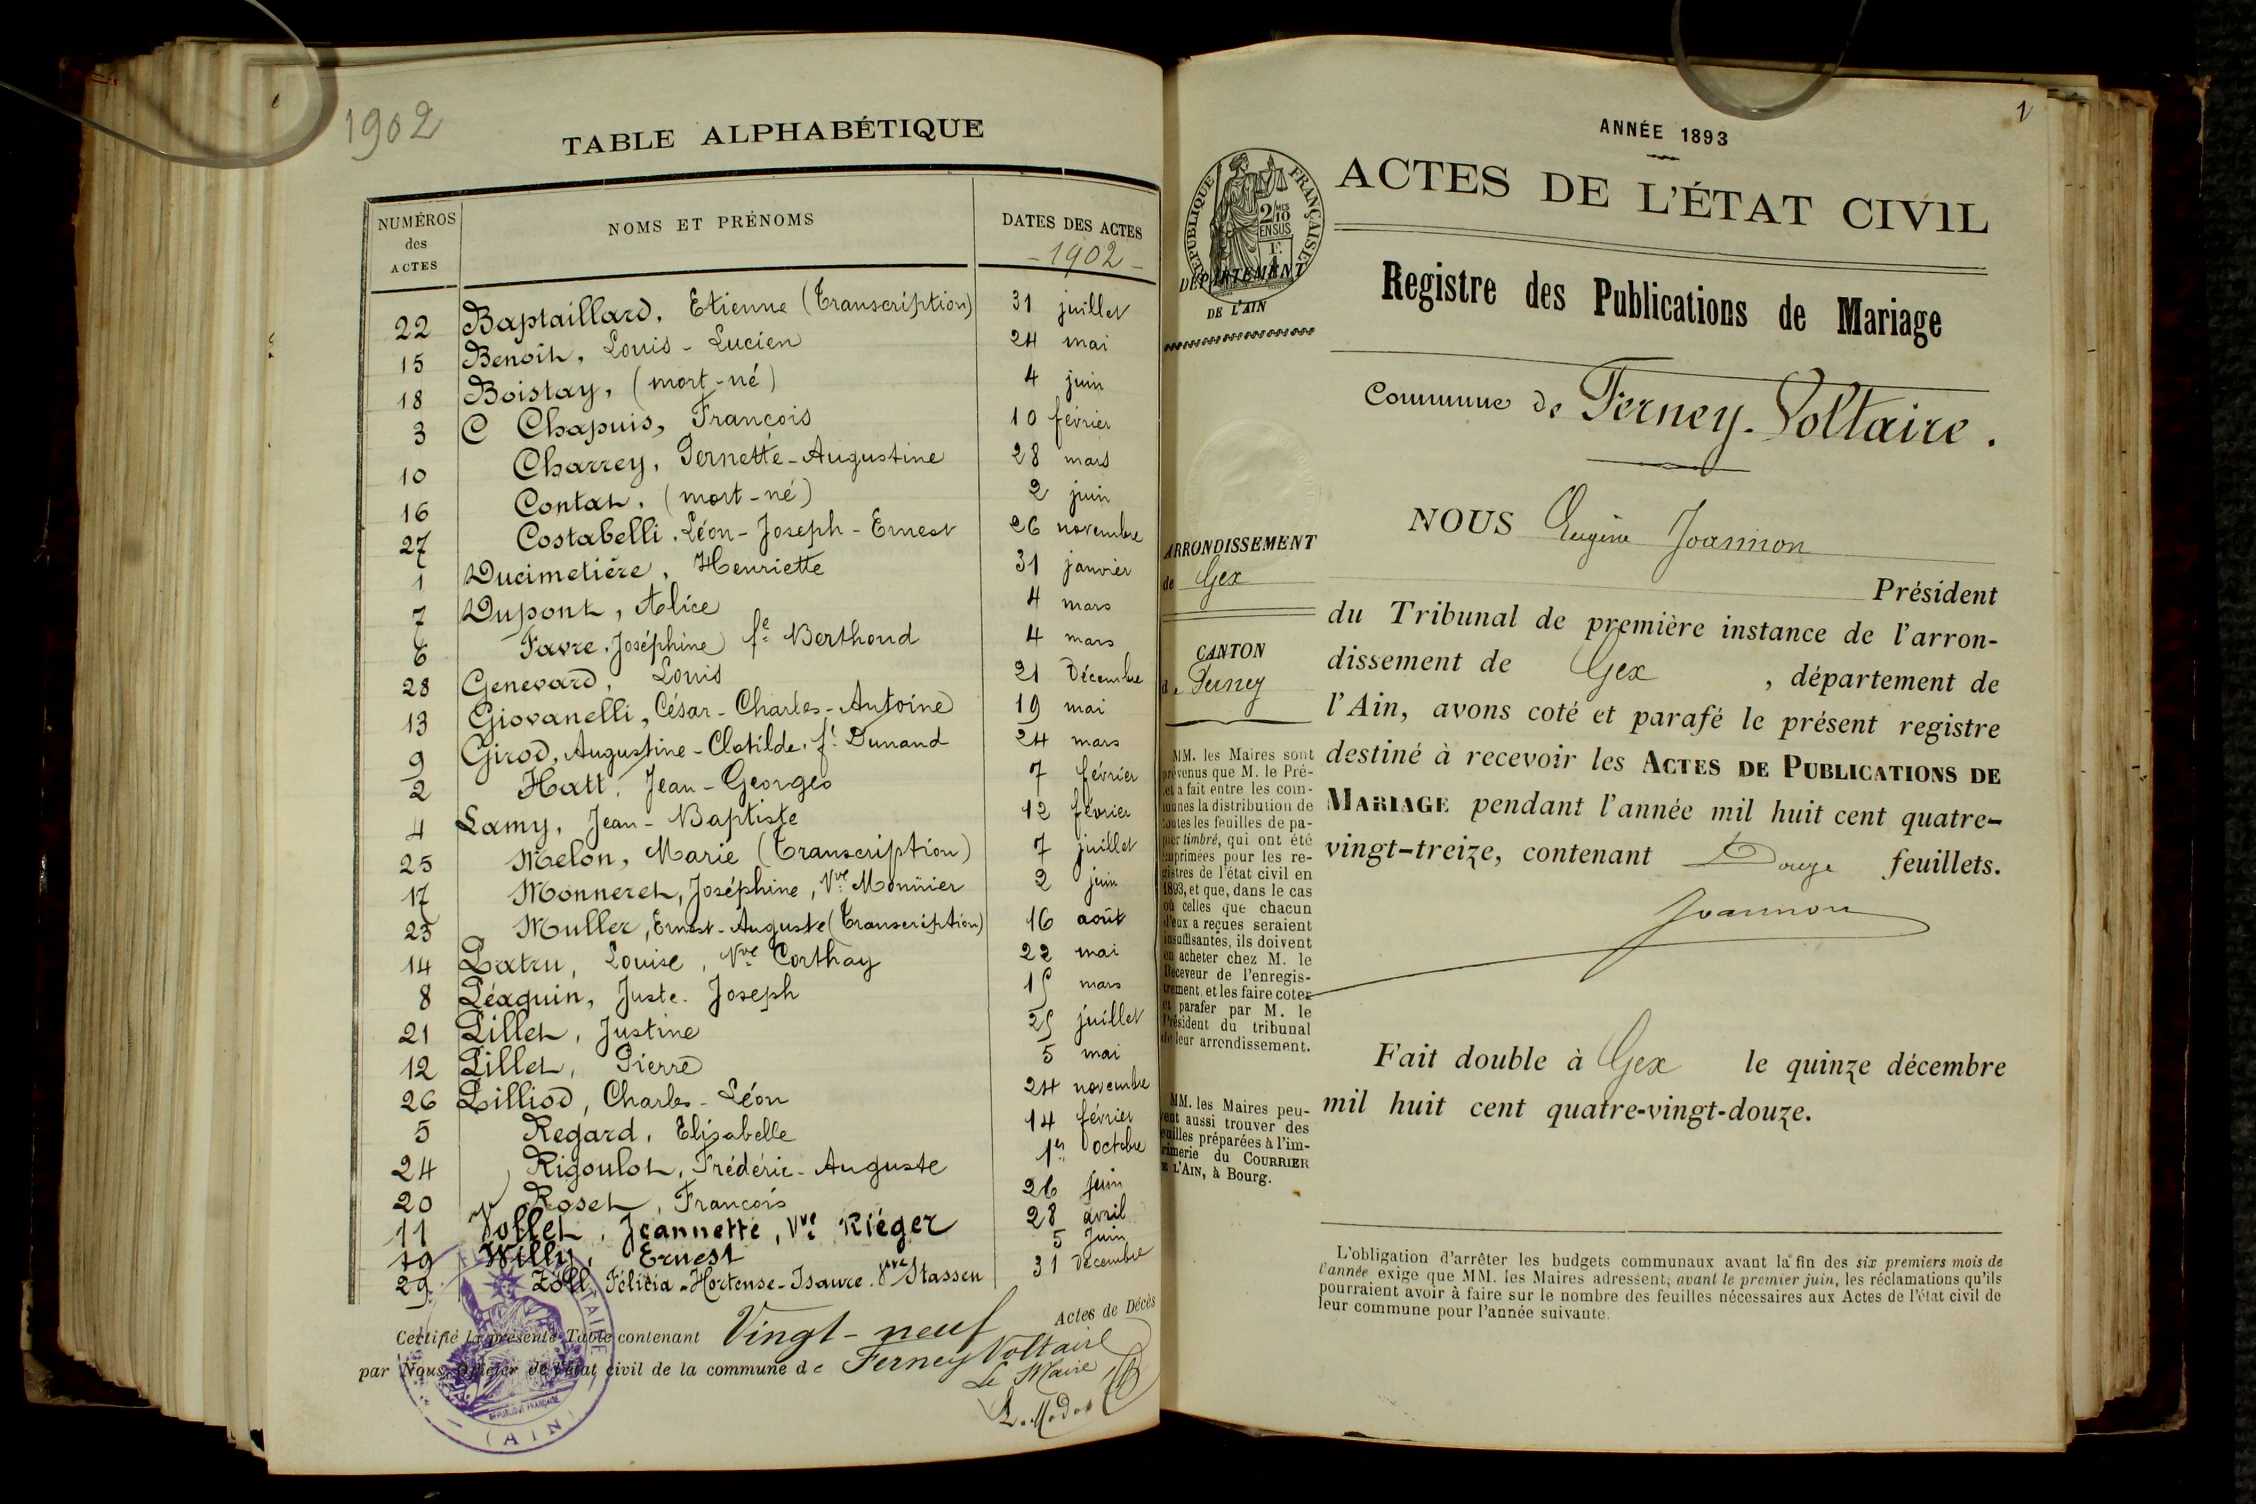 1902
TABLE ALPHABÉTIQUE
NUMÉROS des ACTES
NOMS ET PRÉNOMS
DATES DES ACTES
- 1902 -
22 Baptaillard, Etienne (Transcription) 31 juillet
15 Benoît, Louis - Lucien 24 mai
18 Boistay, (mort-né) 4 juin
3 C Chapuis, François 10 février
10 Charrey, Pernette-Augustine 28 mars
16 Contat, (mort-né) 2 juin
27 Costabelli, Léon-Joseph-Ernest 26 novembre
1 Ducimetière, Henriette 31 janvier
7 Dupont, Alice 4 mars
6 Favre, Joséphine fe Berthoud 4 mars
28 Genevard, Louis 21 Décembre
13 Giovanelli, César-Charles-Antoine 19 mai
9 Girod, Augustine-Clotilde, fe Dunand 24 mars
2 Hatt, Jean-Georges 7 février
4 Lamy, Jean-Baptiste 12 février
25 Melon, Marie (Transcription) 7 juillet
17 Monneret, Joséphine, Vve Monnier 2 juin
23 Muller, Ernest-Auguste (Transcription) 16 août
14 Patru, Louise, Vve Corthay 22 mai
8 Péaquin, Juste-Joseph 15 mars
21 Pillet, Justine 25 juillet
12 Pillet, Pierre 5 mai
26 Pilliod, Charles-Léon 24 novembre
5 Regard, Elisabelle 14 février
24 Rigoulot, Frédéric-Auguste 1er octobre
20 Roset, François 26 juin
11 Vollet, Jeannette, Vve Riéger 28 avril
19 Willy, Ernest 5 Juin
29 Zoll, Félicia-Hortense-Isaure. Vve Stassen 31 Décembre
Certifié la présente Table contenant Vingt-neuf Actes de Décès
par Nous, Officier de l'état civil de la commune de Ferney Voltaire
Le Maire
RÉPUBLIQUE FRANÇAISE
(AIN)
1
ANNÉE 1893
ACTES DE L'ÉTAT CIVIL
Registre des Publications de Mariage
Commune de Ferney-Voltaire.
RÉPUBLIQUE FRANÇAISE
2/10
EN SUS
DÉPARTEMENT
DE L'AIN
ARRONDISSEMENT
de Gex
CANTON
de Ferney
MM. les Maires sont
prévenus que M. le Pré-
fet a fait entre les com-
munes la distribution de
toutes les feuilles de pa-
pier timbré, qui ont été
imprimées pour les re-
gistres de l'état civil en
1893, et que, dans le cas
où celles que chacun
d'eux a reçues seraient
insuffisantes, ils doivent
en acheter chez M. le
Receveur de l'enregis-
trement, et les faire coter
et parafer par M. le
Président du tribunal
de leur arrondissement.
MM. les Maires peu-
vent aussi trouver des
feuilles préparées à l'im-
primerie du COURRIER
DE L'AIN, à Bourg.
NOUS Eugène Joannon
Président
du Tribunal de première instance de l'arron-
dissement de Gex, département de
l'Ain, avons coté et parafé le présent registre
destiné à recevoir les ACTES DE PUBLICATIONS DE
MARIAGE pendant l'année mil huit cent quatre-
vingt-treize, contenant Douze feuillets.
Joannon
Fait double à Gex le quinze décembre
mil huit cent quatre-vingt-douze.
L'obligation d'arrêter les budgets communaux avant la fin des six premiers mois de
l'année exige que MM. les Maires adressent, avant le premier juin, les réclamations qu'ils
pourraient avoir à faire sur le nombre des feuilles nécessaires aux Actes de l'état civil de
leur commune pour l'année suivante.